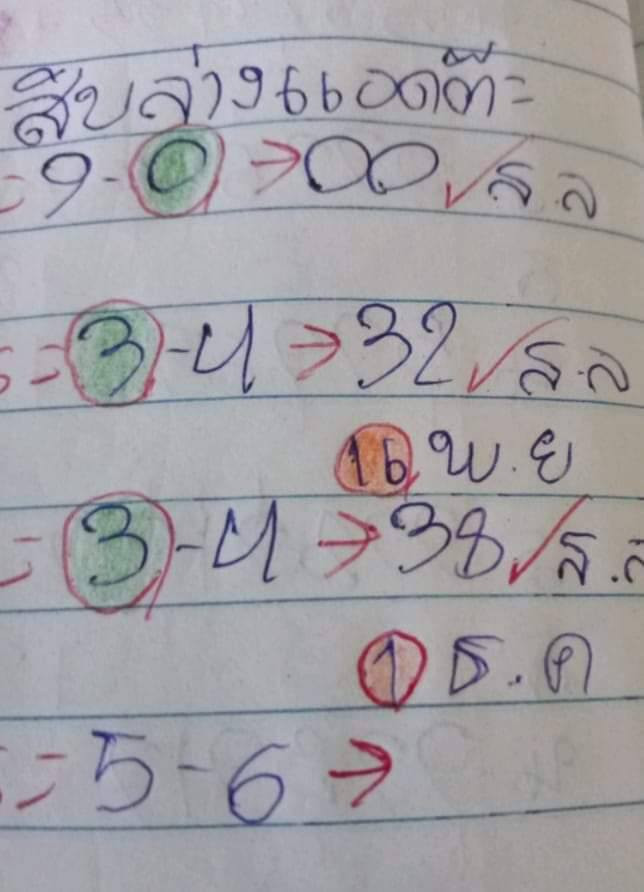 สิบล่างแอดต๊ะ
=9-0→00✓ส.ล
=3-4→32✓ส.ล
16 พ.ย
=3-4→38✓ส.ล
1 ธ.ค
=5-6→